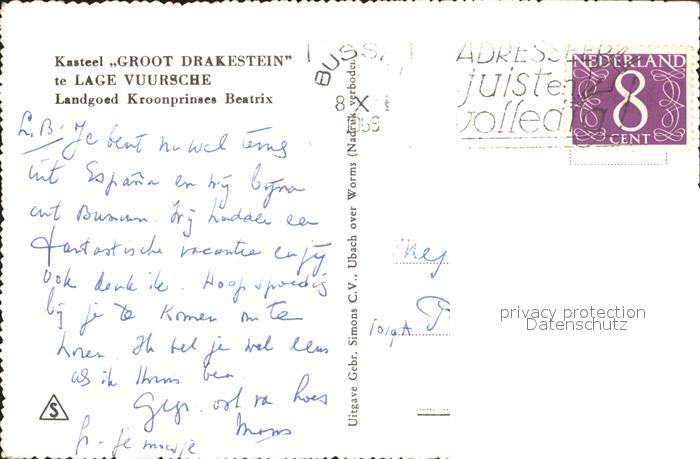 Kasteel „GROOT DRAKESTEIN”
te LAGE VUURSCHE
Landgoed Kroonprinses Beatrix
L.B. Je bent nu wel terug
uit España en wij bijna
uit Bussum. Wij hadden een
fantastische vacantie en jij
ook denk ik. Hoop spoedig
bij je te komen om te
horen. Ik bel je wel eens
als ik thuis ben.
ook va
je
Uitgave Gebr. Simons C.V., Ubach over Worms (Nadruk verboden)
BUSS
8 X
ADRESSEER
juist en
volledig
NEDERLAND
8
CENT
Mej
privacy protection
Datenschutz
S